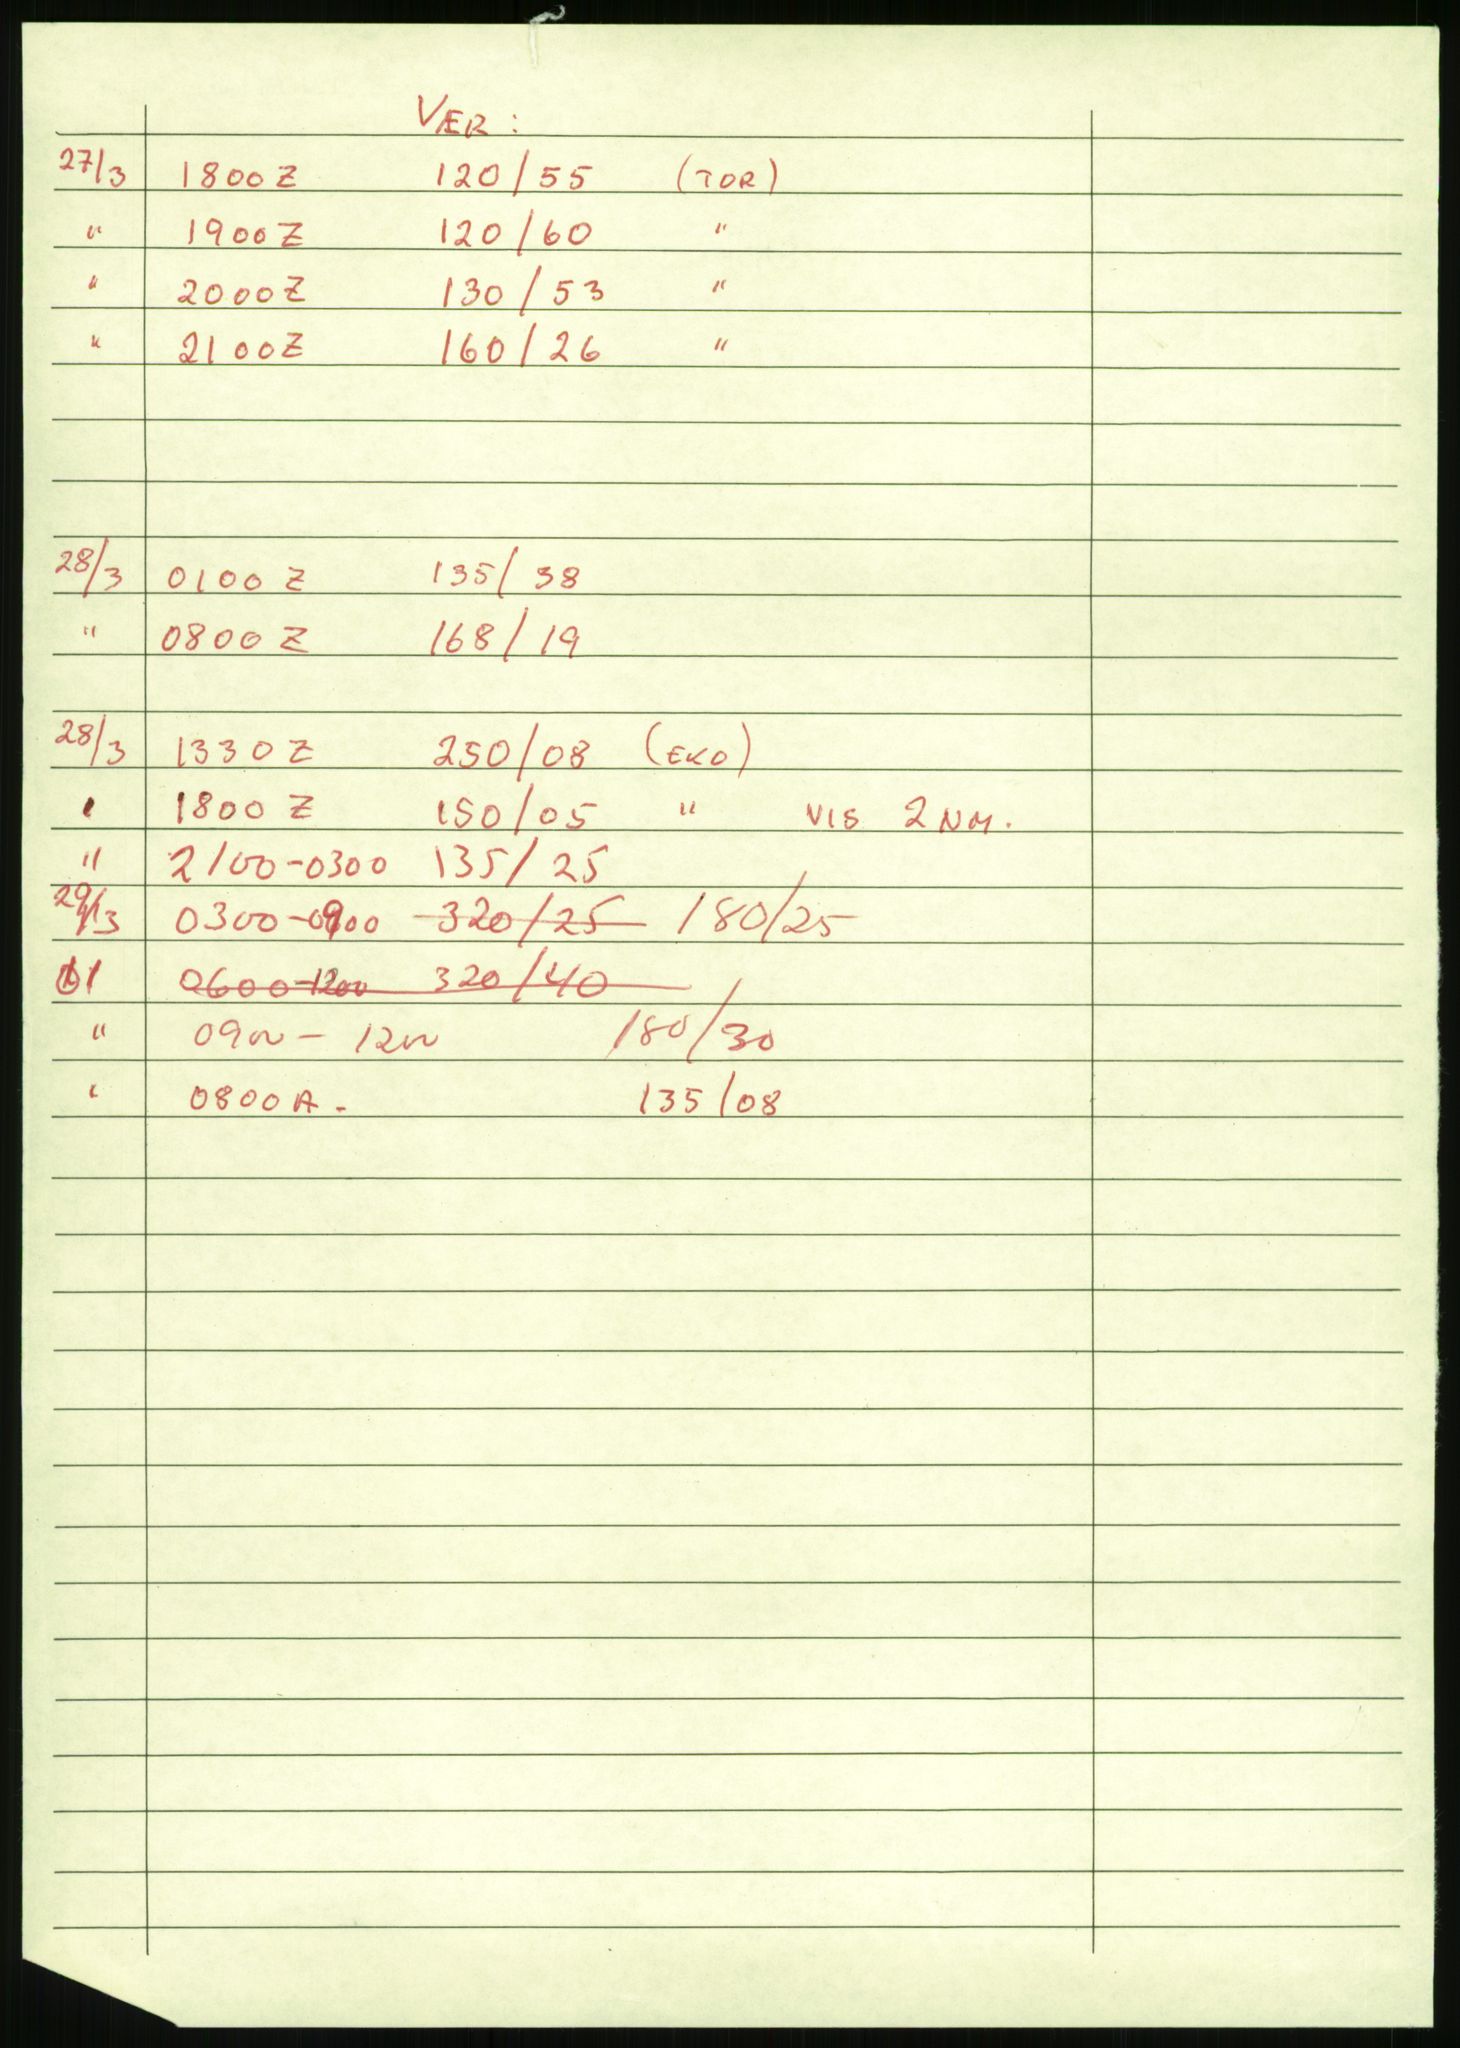 VÆR:
27/3 1800Z 120/55 (TOR)
" 1900Z 120/60 "
" 2000Z 130/53 "
" 2100Z 160/26 "
28/3 0100Z 135/38
" 0800Z 168/19
28/3 1330Z 250/08 (EKO)
" 1800Z 150/05 " VIS 2 NM.
" 2100-0300 135/25
29/3 0300-0900 320/25 180/25
" 0600-1200 320/40
" 0900-1200 180/30
" 0800A. 135/08